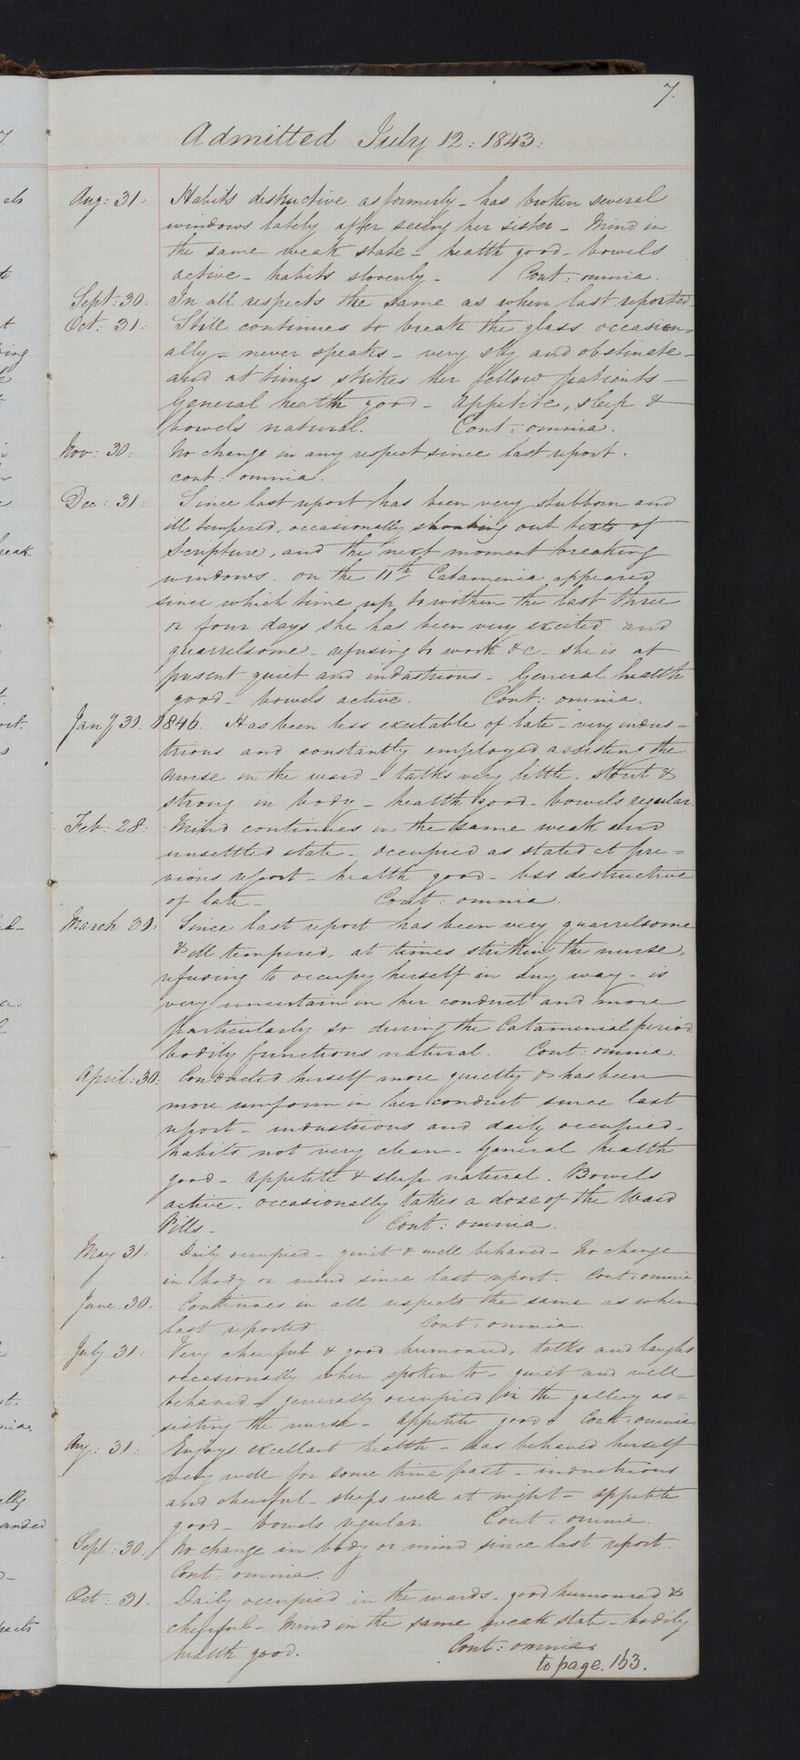 7.
Admitted July 12: 1843:
Aug: 31: Habits destructive as formerly - has broken several
windows lately after seeing her sister - Mind in
the same weak state - health good - bowels
active - habits slovenly - Cont: omnia.
Sept: 30: In all respects the same as when last reported -
Oct: 31: Still continues to break the glass occasion=
ally - never speaks - very sly and obstinate -
and at times strikes her fellow patients -
General health good - appetite, sleep &
bowels natural. Cont: omnia.
Nov: 30: No change in any respect since last report.
cont: omnia.
Dec: 31: Since last report has been very stubborn and
ill tempered, occasionally shouting out texts of
Scripture, and the next moment breaking
windows. on the 11th Catamenia appeared
since which time up to within the last three
or four days she has been very excited and
quarrelsome - refusing to work &c - she is at
present quiet and industrious - General health
good - bowels active. Cont: omnia.
Jany 30: 1846. Has been less excitable of late - very indus=
trious and constantly employed assisting the
nurse in the ward - talks very little. Stout &
strong in body - health good - bowels regular.
Feb: 28: Mind continues in the same weak and
unsettled state - occupied as stated at pre=
vious report - health good - less destructive
of late - Cont: omnia.
March 30: Since last report has been very quarrelsome
& ill tempered, at times striking the nurse,
refusing to occupy herself in any way - is
very uncertain in her conduct and more
particularly so during the Catamenial period
bodily functions natural. Cont: omnia.
April: 30: Conducted herself more quietly & has been
more uniform in her conduct since last
report - industrious and daily occupied -
habits not very clean - General health
good - appetite & sleep natural. Bowels
active. occasionally takes a dose of the Ward
Pills - Cont: omnia.
May 31: Daily occupied - quiet & well behaved - No change
in body or mind since last report. Cont: omnia
June 30: Continues in all respects the same as when
last reported. Cont: omnia
July 31: Very cheerful & good humoured, talks and laughs
occasionally when spoken to - quiet and well
behaved & generally occupied in the gallery as=
sisting the nurse - appetite good. Cont: omnia
Aug: 31: Enjoys excellent health - has behaved herself
very well for some time past - industrious
and cheerful - sleeps well at night - appetite
good - bowels regular. Cont: omnia.
Sept: 30: No change in body or mind since last report.
Cont: omnia.
Oct: 31: Daily occupied in the wards - good humoured &
cheerful - Mind in the same weak state - bodily
health good. Cont: omnia
to page. 163.